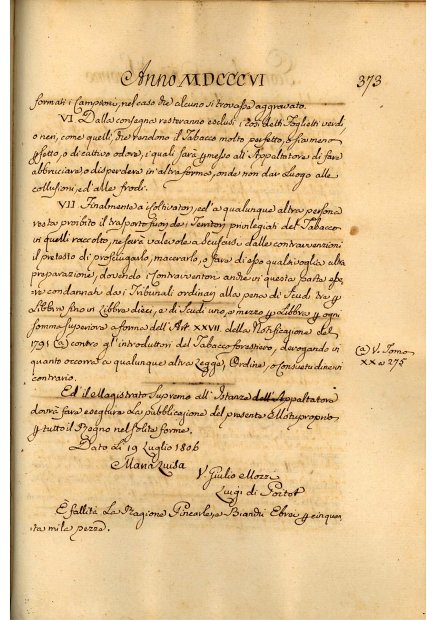 Anno MDCCCVI
373
formati i Campioni, nel caso che alcuno si trovasse aggravato.
VI Dalla consegna resteranno esclusi i così detti Foglietti verdi,
o neri, come quelli, che rendono il Tabacco molto perfetto, o sia meno
perfetto, o di cattivo odore, i quali sarà permesso all' Appaltatore di fare
abbruciare, o disperdere in altra forma, onde non dar luogo alle
collusioni, ed alle frodi.
VII Finalmente a' Coltivatori, ed a qualunque altra persona
resta proibito il trasporto fuori dei Territori privilegiati del Tabacco
in quelli raccolto, ne sarà valevole a scusarsi dalle contravvenzioni
il pretesto di prosciugarlo, macerarlo, o fare di esso qualsivoglia altra
preparazione, dovendo i Contravventori anche in questa parte esse
re condannati dai Tribunali ordinari alla pena di Scudi tre per
Libbra fino in Libbre dieci, e di Scudi uno, e mezzo per Libbra per ogni
somma superiore a forma dell' Art. XXVII. della Notificazione del
1791 (a) contro gl' introduttori del Tabacco forestiero, derogando in
quanto occorra a qualunque altra Legge, Ordine, o Consuetudine in
contrario.
(a) V. Tomo
XX a 275
Ed il Magistrato Supremo all' Istanze dell' Appaltatore
dovrà fare eseguire la pubblicazione del presente Motuproprio
per tutto il Regno nelle solite forme.
Dato li 19 Luglio 1806
Maria Luisa
V. Giulio Mozzi
Luigi di Portot
È fallita la Ragione e Bianchi Ebrei per cinquan
ta mila pezze.